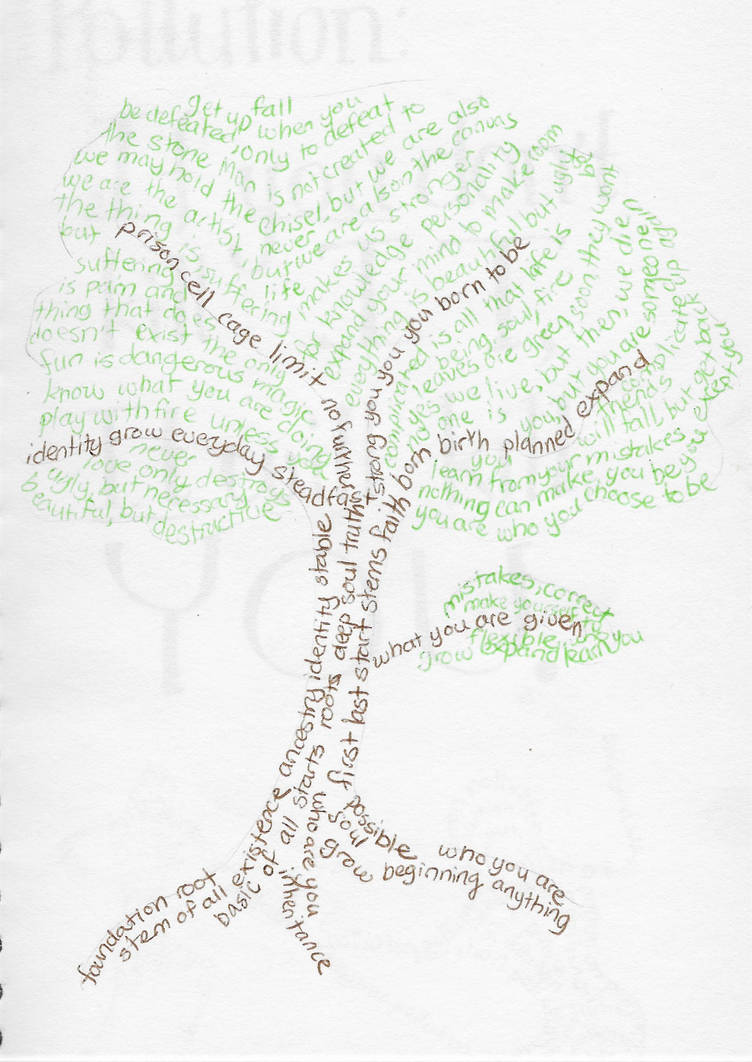 Pollution:
get up fall
be defeated, when you
the stone man only to defeat
is not created to
we may hold the chisel, but we are also
we are the artist but we are also on the canvas
the thing never
but is suffering makes us stronger
suffering life for knowledge personality
is pain and expand your mind to make room
thing that
doesn't exist the only everything is beautiful but ugly, yet
fun is dangerous magic
know what you are doing
play with fire unless you
never
love only destroys
ugly, but necessary
beautiful, but destructive
red is all that life is
being, soul, fire
leaves are green soon they want
yes we live, but then, we die
one is you, but you are someone
you
friends
will fall, but get back up again
learn from your mistakes
nothing can make you be you except you
you are who you choose to be
prison cell cage limit no further
identity grow everyday steadfast
strong you you you born to be
birth planned expand
mistakes, correct
make yourself
what you are given
flexible
grow expand learn you
ancestry identity stable
starts roots deep soul truth
first last start stems faith born
foundation root
stem of all existence
basic of all
who are you
inheritance
soul
grow
possible
who you are
beginning anything
YOU!